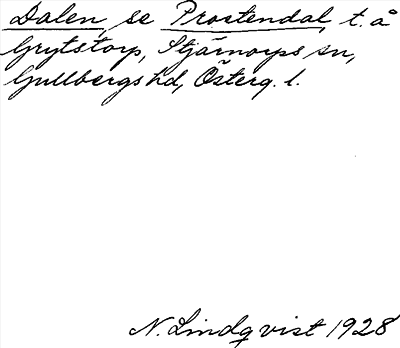 Dalen, se Prostendal, t. å
Grytstorp, Stjärnorps sn,
Gullbergs hd, Österg. l.
N. Lindqvist 1928